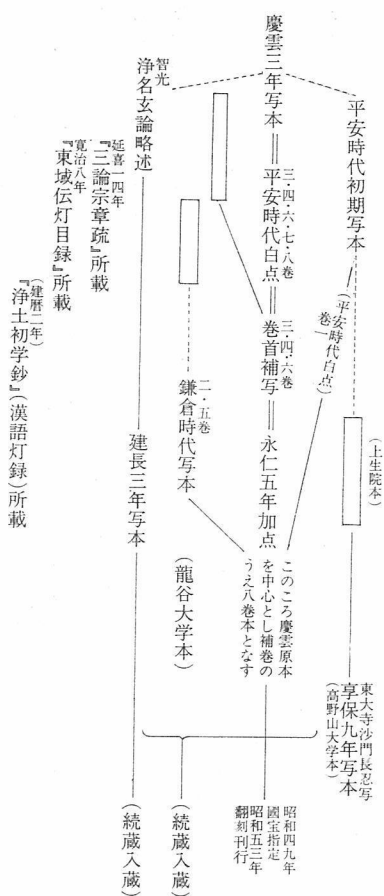 平安時代初期写本
(平安時代白点)
巻一
(上生院本)
東大寺沙門長忍写
享保九年写本
(高野山大学本)
慶雲三年写本
三・四・六・七・八巻
平安時代白点
三・四・六巻
巻首補写
永仁五年加点
このころ慶雲原本
を中心とし補巻の
うえ八巻本となす
昭和四九年
國宝指定
昭和五三年
翻刻刊行
二・五巻
鎌倉時代写本
(龍谷大学本)
(続蔵入蔵)
智光
浄名玄論略述
建長三年写本
(続蔵入蔵)
延喜一四年
『三論宗章疏』所載
寛治八年
『東域伝灯目録』所載
(建暦二年)
『浄土初学鈔』(漢語灯録)所載